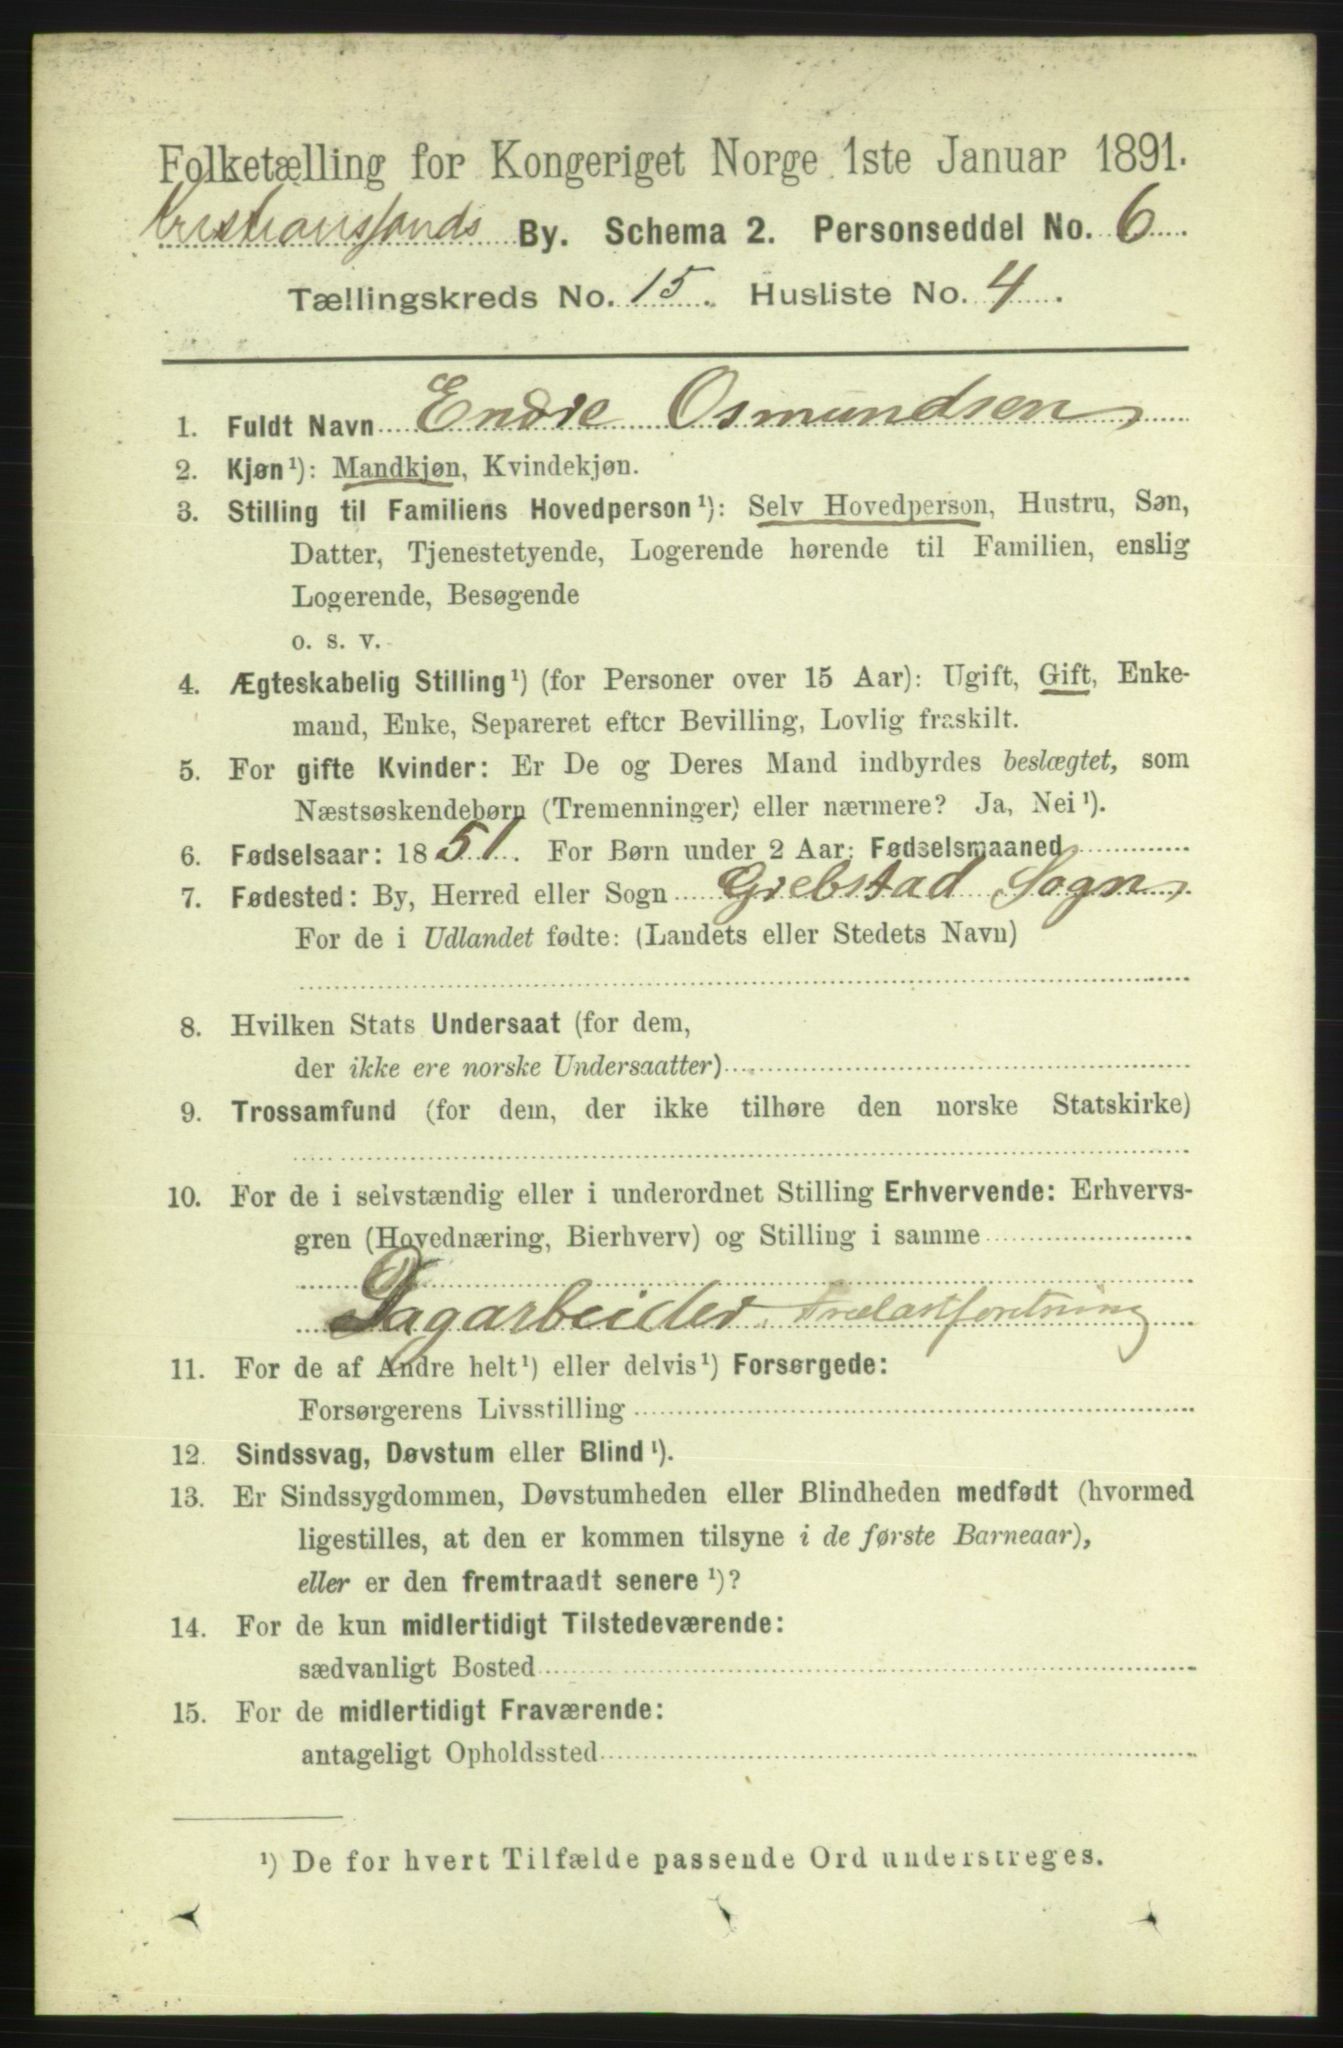 Folketælling for Kongeriget Norge 1ste Januar 1891.
Kristianssands By. Schema 2. Personseddel No. 6
Tællingskreds No. 15. Husliste No. 4.
1. Fuldt Navn Endre Osmundsen
2. Kjøn¹): Mandkjøn, Kvindekjøn.
3. Stilling til Familiens Hovedperson¹): Selv Hovedperson, Hustru, Søn,
Datter, Tjenestetyende, Logerende hørende til Familien, enslig
Logerende, Besøgende
o. s. v.
4. Ægteskabelig Stilling¹) (for Personer over 15 Aar): Ugift, Gift, Enke-
mand, Enke, Separeret efter Bevilling, Lovlig fraskilt.
5. For gifte Kvinder: Er De og Deres Mand indbyrdes beslægtet, som
Næstsøskendebørn (Tremenninger) eller nærmere? Ja, Nei¹).
6. Fødselsaar: 1851. For Børn under 2 Aar: Fødselsmaaned
7. Fødested: By, Herred eller Sogn Grebstad Sogn
For de i Udlandet fødte: (Landets eller Stedets Navn)
8. Hvilken Stats Undersaat (for dem,
der ikke ere norske Undersaatter)
9. Trossamfund (for dem, der ikke tilhøre den norske Statskirke)
10. For de i selvstændig eller i underordnet Stilling Erhvervende: Erhvervs-
gren (Hovednæring, Bierhverv) og Stilling i samme
Dagarbeider. Trælastforretning
11. For de af Andre helt¹) eller delvis¹) Forsørgede:
Forsørgerens Livsstilling
12. Sindssvag, Døvstum eller Blind¹).
13. Er Sindssygdommen, Døvstumheden eller Blindheden medfødt (hvormed
ligestilles, at den er kommen tilsyne i de første Barneaar),
eller er den fremtraadt senere¹)?
14. For de kun midlertidigt Tilstedeværende:
sædvanligt Bosted
15. For de midlertidigt Fraværende:
antageligt Opholdssted
¹) De for hvert Tilfælde passende Ord understreges.